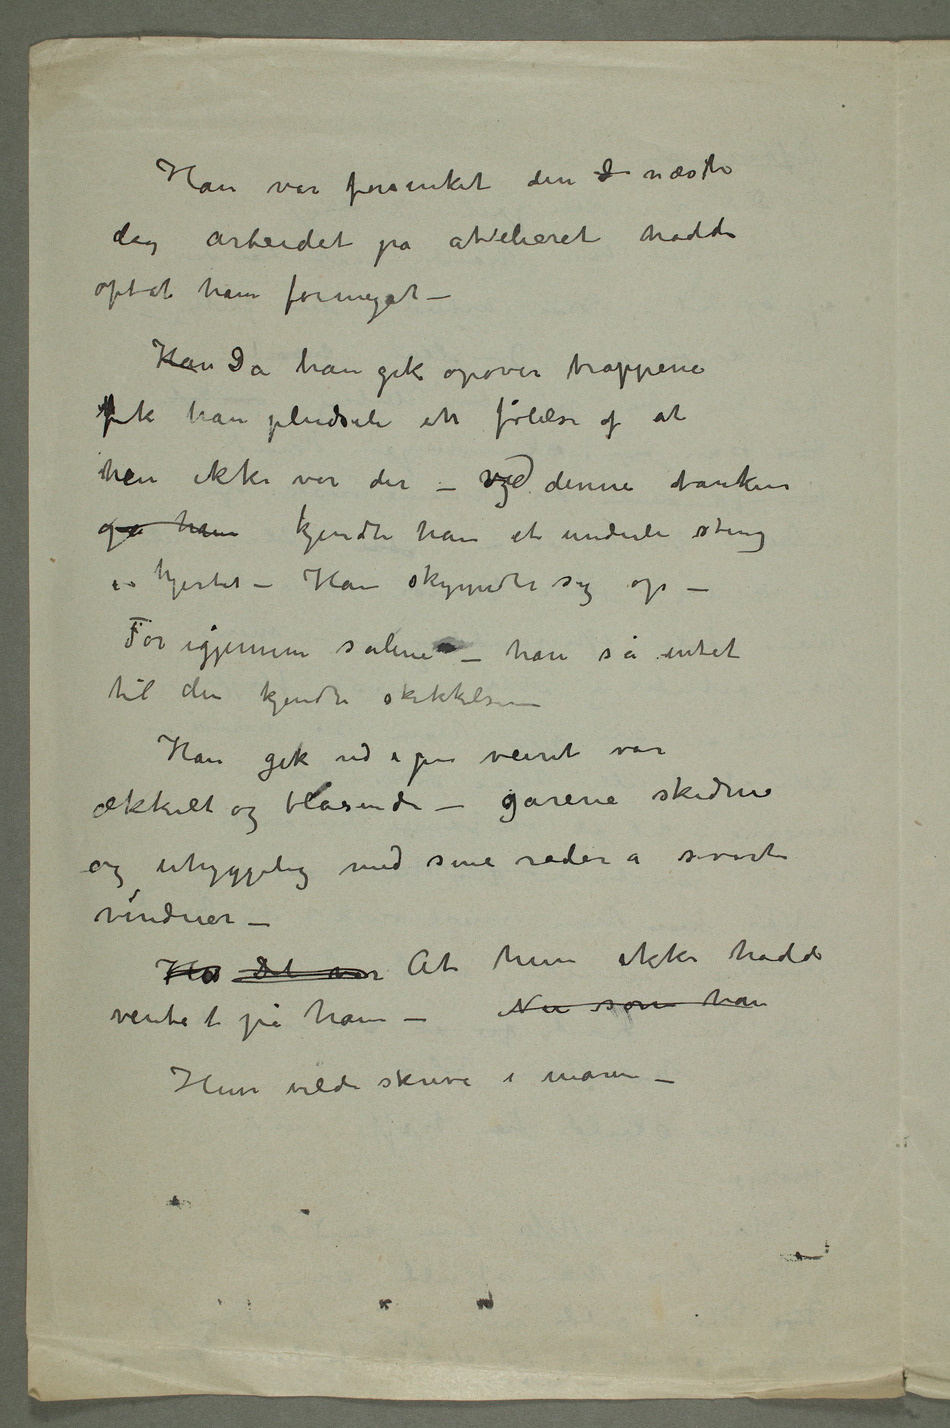 Han var forsinket den d næste
dag arbeidet på attelieret hadde
optat ham formeget –
Han Da han gik opover trappene
fik han pludseli en følelse af at
hen ikke var der – ved denne tanken
ga ham kjendte han et underli sting
i hjertet – Han skyndte sig op –
For igjennem salene – han så intet
til den kjendte skikkelsen –
Han gik ud igjen veiret var
ækkelt og blåsende – gårene skidne
og uhyggelig med sine rader a svarte
vinduer –
Ha Det var At hun ikke hadde
ventet på ham – Nu som han
Hun vilde skrive i maren –